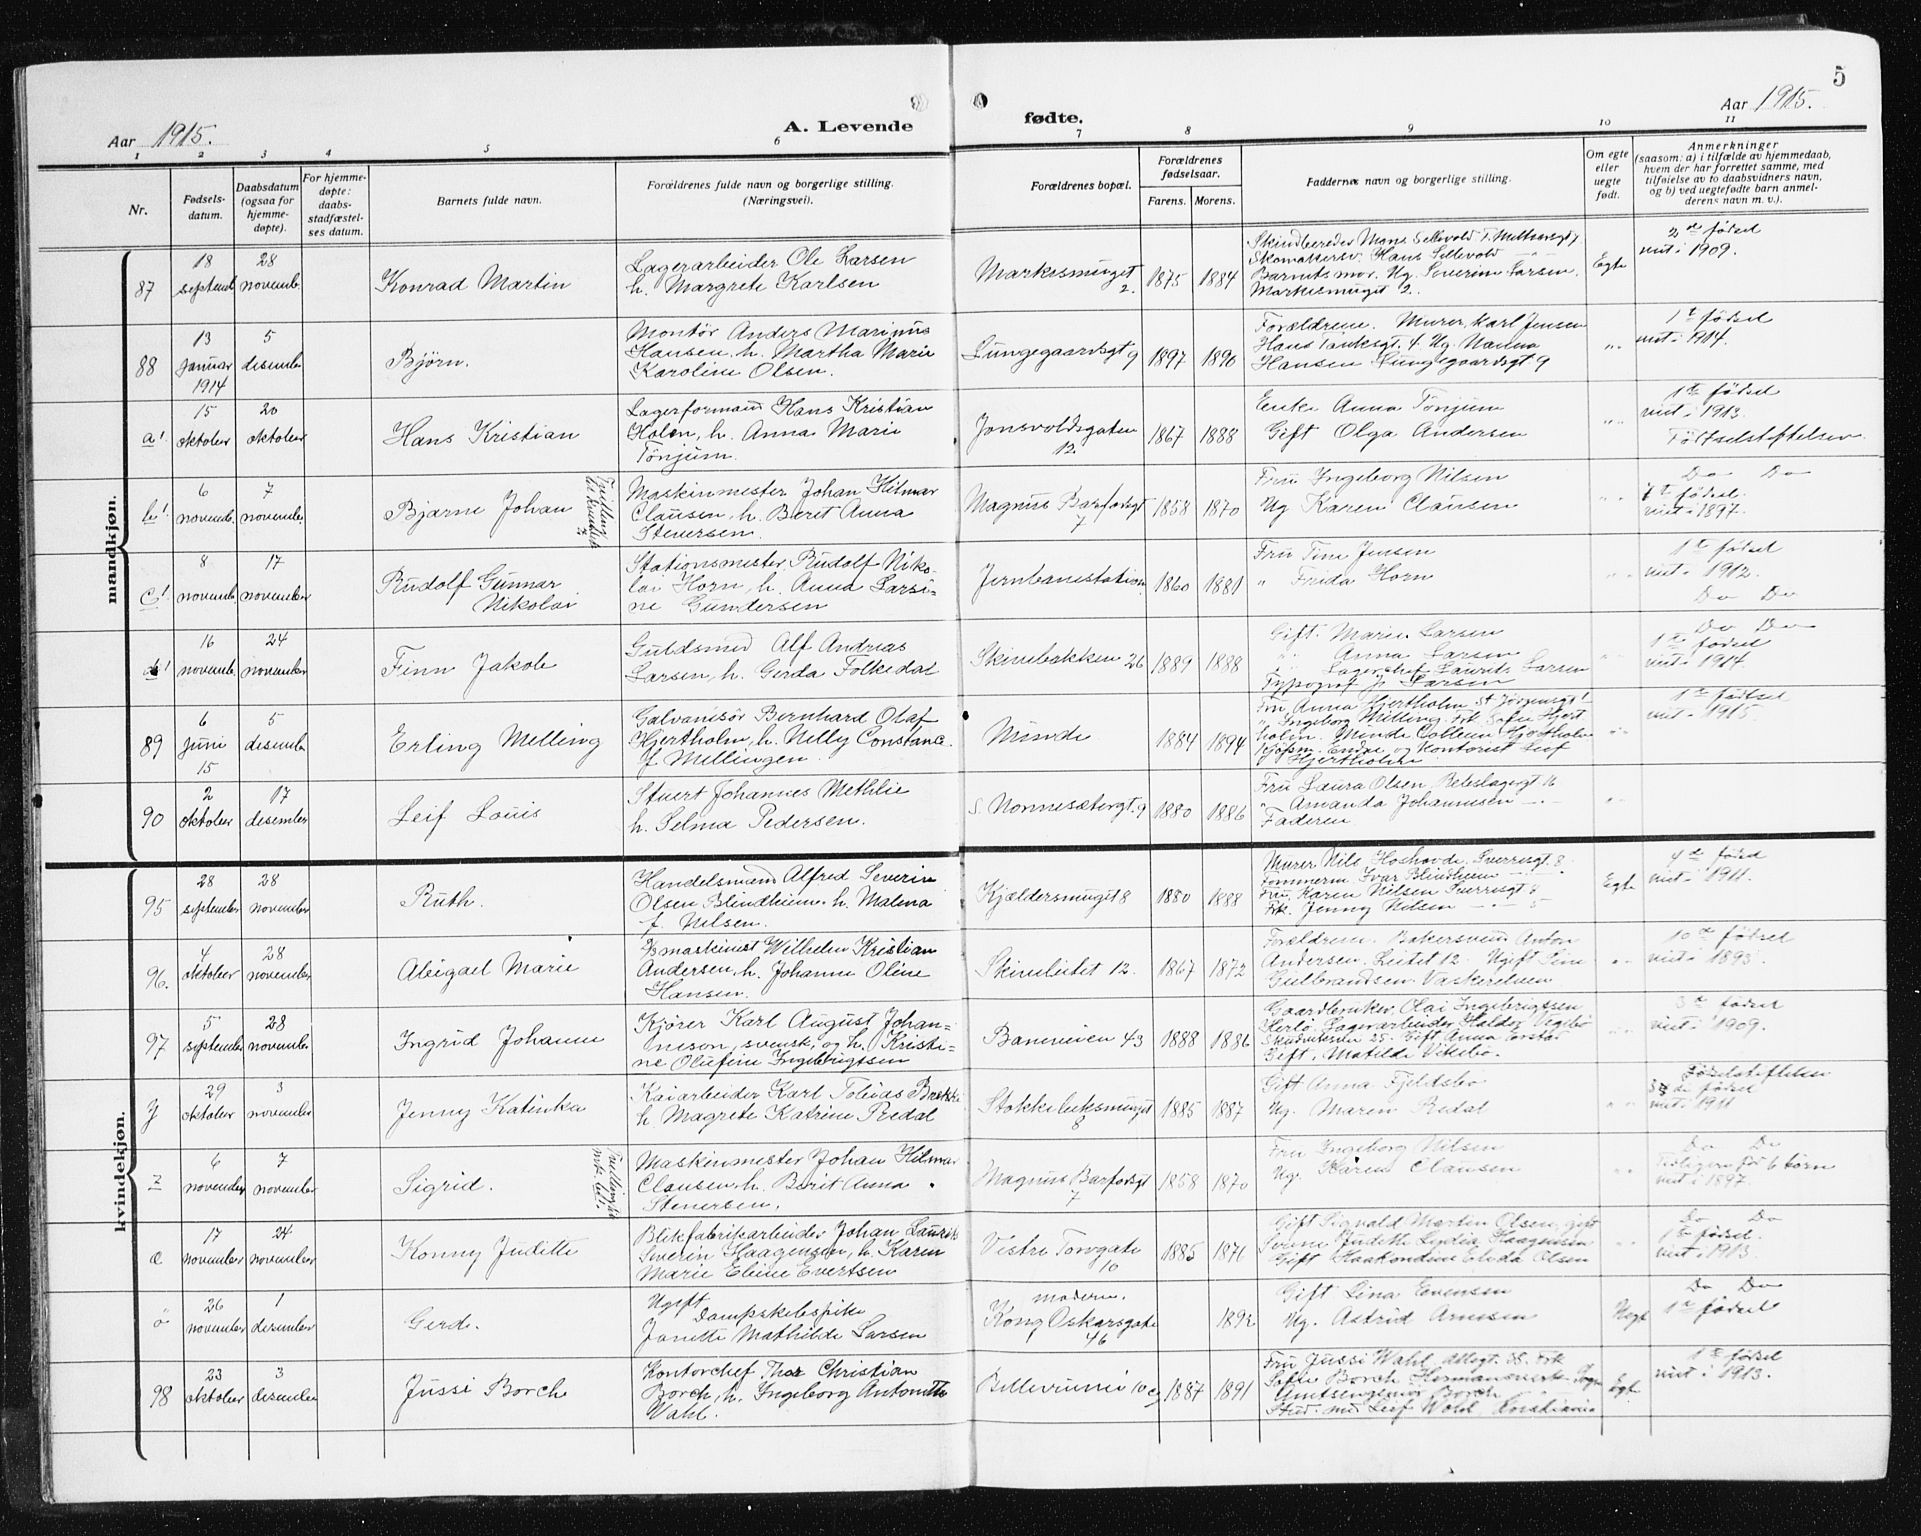 5
Aar 1915.
A. Levende
fødte.
Aar 1915.
1 2 3 4 5 6 7 8 9 10 11
Nr.
Fødsels-
datum.
Daabsdatum
(ogsaa for
hjemme-
døpte).
For hjemme-
døpte:
daabs-
stadfæstel-
ses datum.
Barnets fulde navn.
Forældrenes fulde navn og borgerlige stilling.
(Næringsvei).
Forældrenes bopæl.
Forældrenes
fødselsaar.
Farens. Morens.
Faddernes navn og borgerlige stilling.
Om egte
eller
uegte
født.
Anmerkninger
(saasom: a) i tilfælde av hjemmedaab,
hvem der har forrettet samme, med
tilføielse av to daabsvidners navn,
og b) ved uegtefødte barn anmel-
derens navn m. v.).
mandkjøn.
87
18
septemb.
28
novemb.
Konrad Martin
Lagerarbeider Ole Larsen
h. Margrete Karlsen
Markesmuget
2.
1875 1884
Skindbereder Mons Sellevold
Skomakersv. Hans Sellevold
Barnets mor. Ug. Severine Larsen.
Markesmuget 2.
Egte
2de fødsel
viet i 1909.
88
13
januar
1914
5
desember
Bjørn.
Montør Anders Marinus
Hansen, h. Martha Marie
Karoline Olsen.
Lungegaardsgt 9
1897 1890
Forældrene. Murer, Karl Jensen
Hans Tanksgt. 4. Ug. Nanna
Hansen Lungegaardsgt 9
1te fødsel
viet i 1914.
a'
15
oktober
20
oktober
Hans Kristian
Lagerformand Hans Kristian
Holen, h. Anna Marie
Tønjum.
Jonsvoldsgaten
12.
1867 1888
Enke Anna Tønjum
Gift Olga Andersen
1te fødsel
viet i 1913.
Fødselsstiftelsen
b'
6
novemb.
7
november
Bjarne Johan
Maskinmester Johan Hilmar
Clausen, h. Berit Anna
Stenersen.
Magnus Barfodsgt
7
1858 1870
Fru Ingeborg Nilsen
Ug Karen Clausen
Do Do
7de fødsel.
viet i 1897.
c'
8
novemb.
17
november
Rudolf Gunnar
Nikolai
Stationsmester Rudolf Niko-
lai Horn, h. Anna Larsi-
ne Gundersen
Jernbanestation
1860 1881
Fru Tine Jensen
" Frida Horn
1te fødsel
viet i 1912.
Do Do
d'
16
novemb.
24
november
Finn Jakob
Guldsmed Alf Andreas
Larsen, h. Gerda Folkedal
Skivebakken 26
1889 1888
Gift. Marie Larsen
" Anna Larsen
Lagerchef Laurits Larsen
Typograf J. Larsen
Do Do
1te fødsel
viet i 1914.
89
6
juni
15
5
desemb.
Erling Melling
Galvanisør Bernhard Olaf
Hjertholm, h. Nelly Constance
f. Mellingen.
Minde
1884 1894
Fru Anna Hjertholm St Jørgensgt
" Ingeborg Milling. Frk. Sofie Hjert
holm. Minde Hjertholm
Endre og Kontorist Leif
Hjertholm
1te fødsel
viet i 1915.
90
2
oktober
17
desember
Leif Louis
Stuert Johannes Methlie
h. Selma Pedersen.
S. Nonnesætergt. 9
1880 1886
Fru Laura Olsen Reteslagergt 16
" Amanda Johannesen
Faderen
kvindekjøn.
95
28
september
28
november
Ruth.
Handelsmand Alfred Severin
Olsen Blindheim. h. Malena
f. Nilsen.
Kjældersmuget 8
1880 1888
Murer Nils Hoshovde, Sverresgt. 8
Tømmerm Ivar Blindheim
Fru Karen Nilsen Sverresgt 8
Frk. Jenny Nilsen 5
Egte
4de fødsel
viet i 1911.
96.
4
oktober
28
november
Abigael Marie
D/S maskinist Wilhelm Kristian
Andersen, h. Johanne Oline
Hansen.
Skiveleitet 12.
1867 1872
Forældrene. Bakersvend Anton
Andersen. Leitet 12. Ugift Tine
Gulbrandsen. Vaskerelven
10de fødsel
viet i 1893.
97
5
september
28
november
Ingrid Johanne
Kjører Karl August Johan-
neson, svensk, og h. Kristi-
ne Olufine Ingebrigtsen
Baneveien 43
1888 1886
Gaardbruker Olai Ingebrigtsen
Herlø. Lagerarbeider Halder Vegebø
25. Gift Anna
Gift, Matilde Vikebø.
3de fødsel
viet i 1909.
y
29
oktober
3
november
Jenny Katinka
Kaiarbeider Karl Tobias Brekke
h Magrete Katrine Redal
Stokkebeksmuget
8
1885 1887
Gift Anna Fjeldsbø
Ug. Maren Redal
Fødselsstiftelsen
3de fødsel
viet i 1911
z
6
november
7
november
Sigrid.
Maskinmester Johan Hilmar
Clausen, h. Berit Anna
Stenersen.
Magnus Barfodsgt
7
1858 1870
Fru Ingeborg Nilsen
Ug. Karen Clausen
Do Do
Tidligere født 6 børn
viet i 1897.
æ
17
november
24
november
Konny Juditte
Blikfabrikarbeider Johan Laurits
Severin Haagensen, h. Karen
Marie Eline Evertsen
Vestre Torvgate
10
1885 1876
Gift Sigvald Martin Olsen, gift
Judith Lydia Haagensen
Gift Haakondine Elida Olsen
Do Do
1te fødsel.
viet i 1913.
ø
26
november
1
desember
Gerd.
Ugift
Dampskibspike
Janette Mathilde Larsen
moderen.
Kong Oskarsgate
46
1892
Gift Lina Evensen
Ug. Astrid Arnesen
Uegt
Do Do
1te fødsel
98
23
oktober
3
desember
Jussi Borch
Kontorchef Thor Christian
Borch, h. Ingeborg Antonette
Wahl.
Bellevuevei 10 c
1887 1891
Fru Jussi Wahl, Allegt. 38. Frk
Sofie Borch Hermansverk Sogn
Amtsingeniør Borch
Stud. med Leif Wahl, Kristiania
Egte
1te fødsel
viet i 1913.